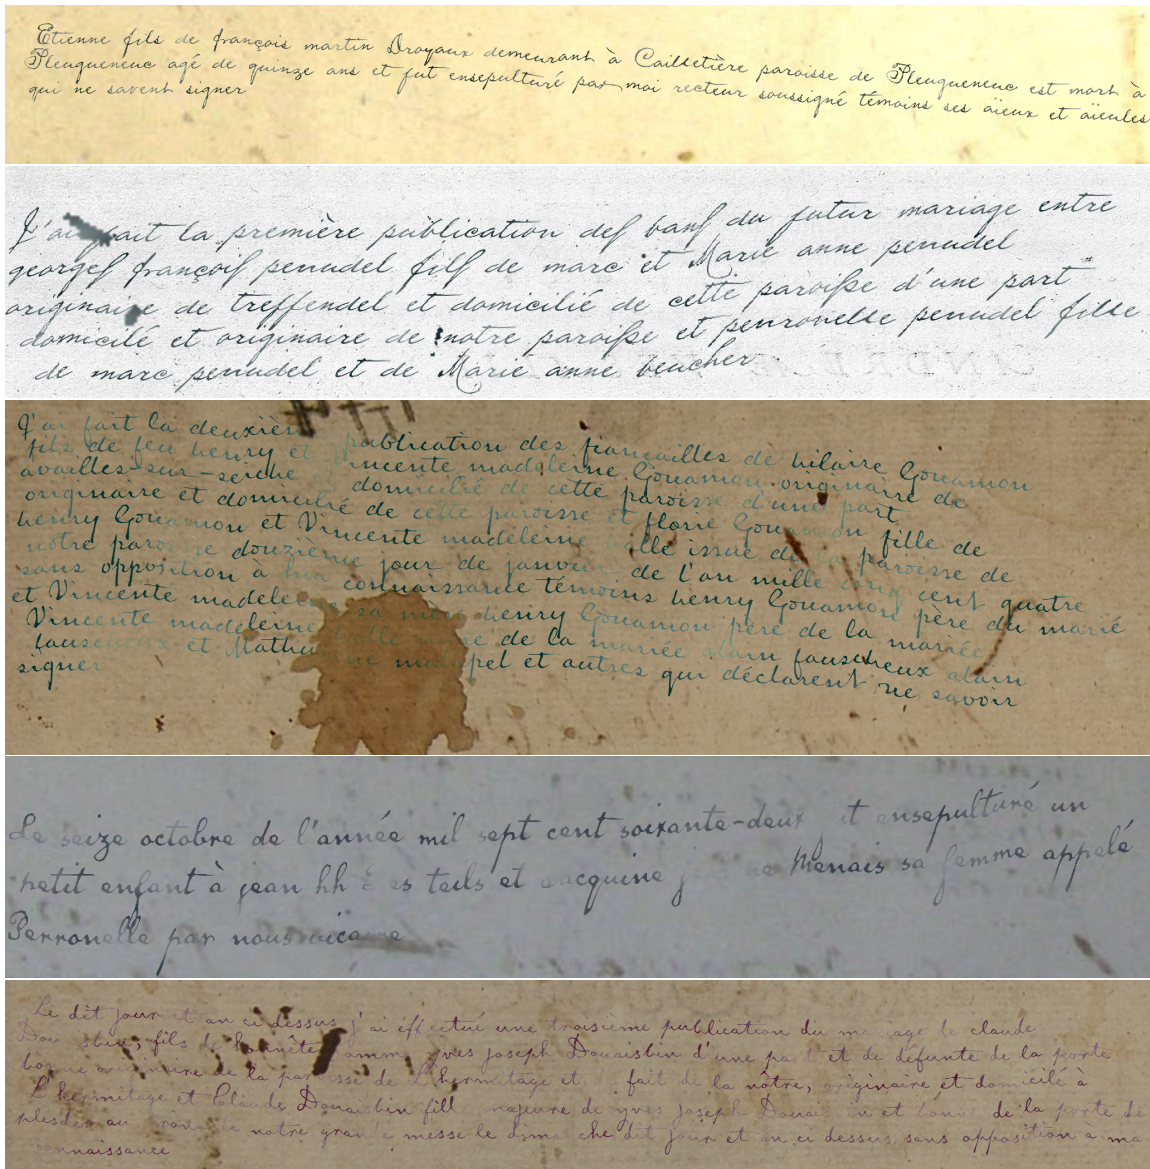 Etienne fils de françois martin Droyaux demeurant à Cailletière paroisse de Pleugueneuc est mort à
Pleugueneuc agé de quinze ans et fut ensepulturé par moi recteur soussigné témoins ses aïeux et aïeules
qui ne savent signer
J'ai fait la première publication des bans du futur mariage entre
georges françois penudel fils de marc et Marie anne penudel
originaire de treffendel et domicilié de cette paroisse d'une part
domicilé et originaire de notre paroisse et penronelle penudel fille
de marc penudel et de Marie anne beucher
J'ai fait la publication des fiancailles de hilaire Gouamon
fils de feu henry et vincente madeleine Gouamon originaire de
availles-sur-seiche domicilié de cette paroisse d'une part
originaire et domicilié de cette paroisse et florie Gouamon fille de
henry Gouamon et Vincente madeleine issue de paroisse de
notre paroisse douzième jour de janvier de l'an mille cinq cent quatre
sans opposition à ma connaissance témoins henry Gouamon père du marié
et Vincente madeleine sa mère henry Gouamon père de la mariée
Vincente madeleine mère de la mariée alain fauscheux alain
fauscheux et et autres qui déclarent ne savoir
signer
Le seize octobre de l'année mil sept cent soixante-deux ensepulturé un
petit enfant à jean teils et Menais sa femme appelé
Perronelle par nous vicaire
Le dit jour et an ci dessus j'ai effectué une troisième publication du mariage de claude
fils de honnête yves joseph Douaisbin d'une part et de défunte de la porte
bonne originaire de la paroisse de L'hermitage et de fait de la nôtre, originaire et domicilé à
L'hermitage et Claude Douaisbin majeure de yves joseph et bonne de la porte de
plesder au prône de notre grande messe le dit jour et an ci dessus sans opposition à ma
connaissance